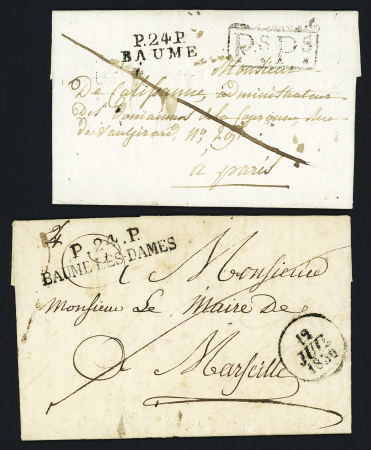 P.24.P.
BAUME
P.sP.s
Monsieur
De administrateur
Des Domaines de la Couronne, Rue
de Vaugirard, n.o
à paris
P. 24. P.
BAUME LES DAMES
à Monsieur
Monsieur Le Maire de
De Marseille
12
JUIL
1830